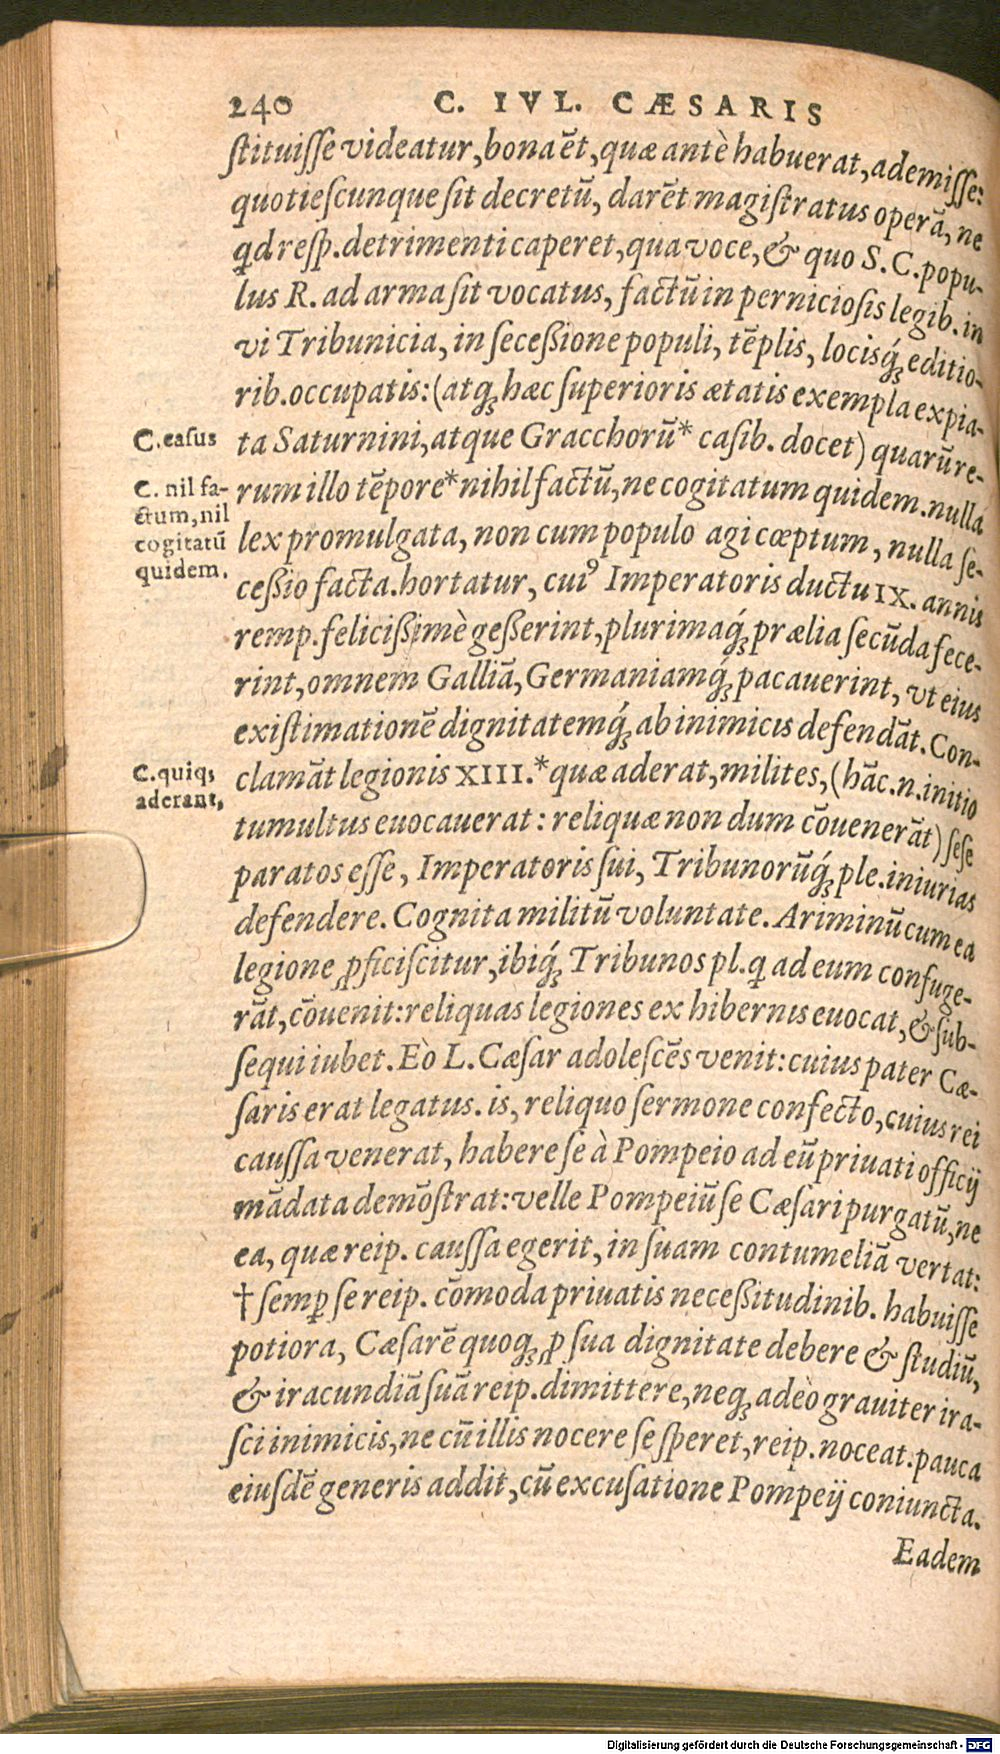 240 C. IVL. CÆSARIS
ſtituiſſe videatur, bona ēt, quæ antè habuerat, ademiſſe:
quotieſcunque ſit decretū, darēt magiſtratus operā, ne
qd reſp. detrimenti caperet, qua voce, & quo S. C. popu-
lus R. ad arma ſit vocatus, factū in pernicioſis legib. in
vi Tribunicia, in ſeceßione populi, tēplis, locisq́ꝫ editio-
rib. occupatis: (atqꝫ hæc ſuperioris ætatis exempla expia-
ta Saturnini, atque Gracchorū* caſib. docet) quarū re-
rum illo tēpore* nihil factū, ne cogitatum quidem. nulla
lex promulgata, non cum populo agi cœptum, nulla ſe-
ceßio facta. hortatur, cuiꝰ Imperatoris ductu IX. annis
remp. felicißimè geßerint, plurimaq́ꝫ prælia ſecūda fece-
rint, omnem Galliā, Germaniamq́ꝫ pacauerint, vt eius
exiſtimationē dignitatemq́ꝫ ab inimicis defendāt. Con-
clamāt legionis XIII.* quæ aderat, milites, (hāc. n. initio
tumultus euocauerat: reliquæ non dum cōuenerāt) ſeſe
paratos eſſe, Imperatoris ſui, Tribunorūq́ꝫ ple. iniurias
defendere. Cognita militū voluntate. Ariminū cum ea
legione ꝓficiſcitur, ibiq́ꝫ Tribunos pl. q ad eum confuge-
rāt, cōuenit: reliquas legiones ex hibernis euocat, & ſub-
ſequi iubet. Eò L. Cæſar adoleſcēs venit: cuius pater Cæ-
ſaris erat legatus. is, reliquo ſermone confecto, cuius rei
cauſſa venerat, habere ſe à Pompeio ad eū priuati officij
mādata demōſtrat: velle Pompeiū ſe Cæſari purgatū, ne
ea, quæ reip. cauſſa egerit, in ſuam contumeliā vertat:
† ſemꝑ ſe reip. cōmoda priuatis neceßitudinib. habuiſſe
potiora, Cæſarē quoqꝫ ꝓ ſua dignitate debere & ſtudiū,
& iracundiā ſuā reip. dimittere, neqꝫ adeò grauiter ira-
ſci inimicis, ne cū illis nocere ſe ſperet, reip. noceat. pauca
eiuſdē generis addit, cū excuſatione Pompeij coniuncta.
Eadem
C. caſus
C. nil fa-
ctum, nil
cogitatū
quidem.
C. quiqꝫ
aderant,
Digitalisierung gefördert durch die Deutsche Forschungsgemeinschaft - DFG